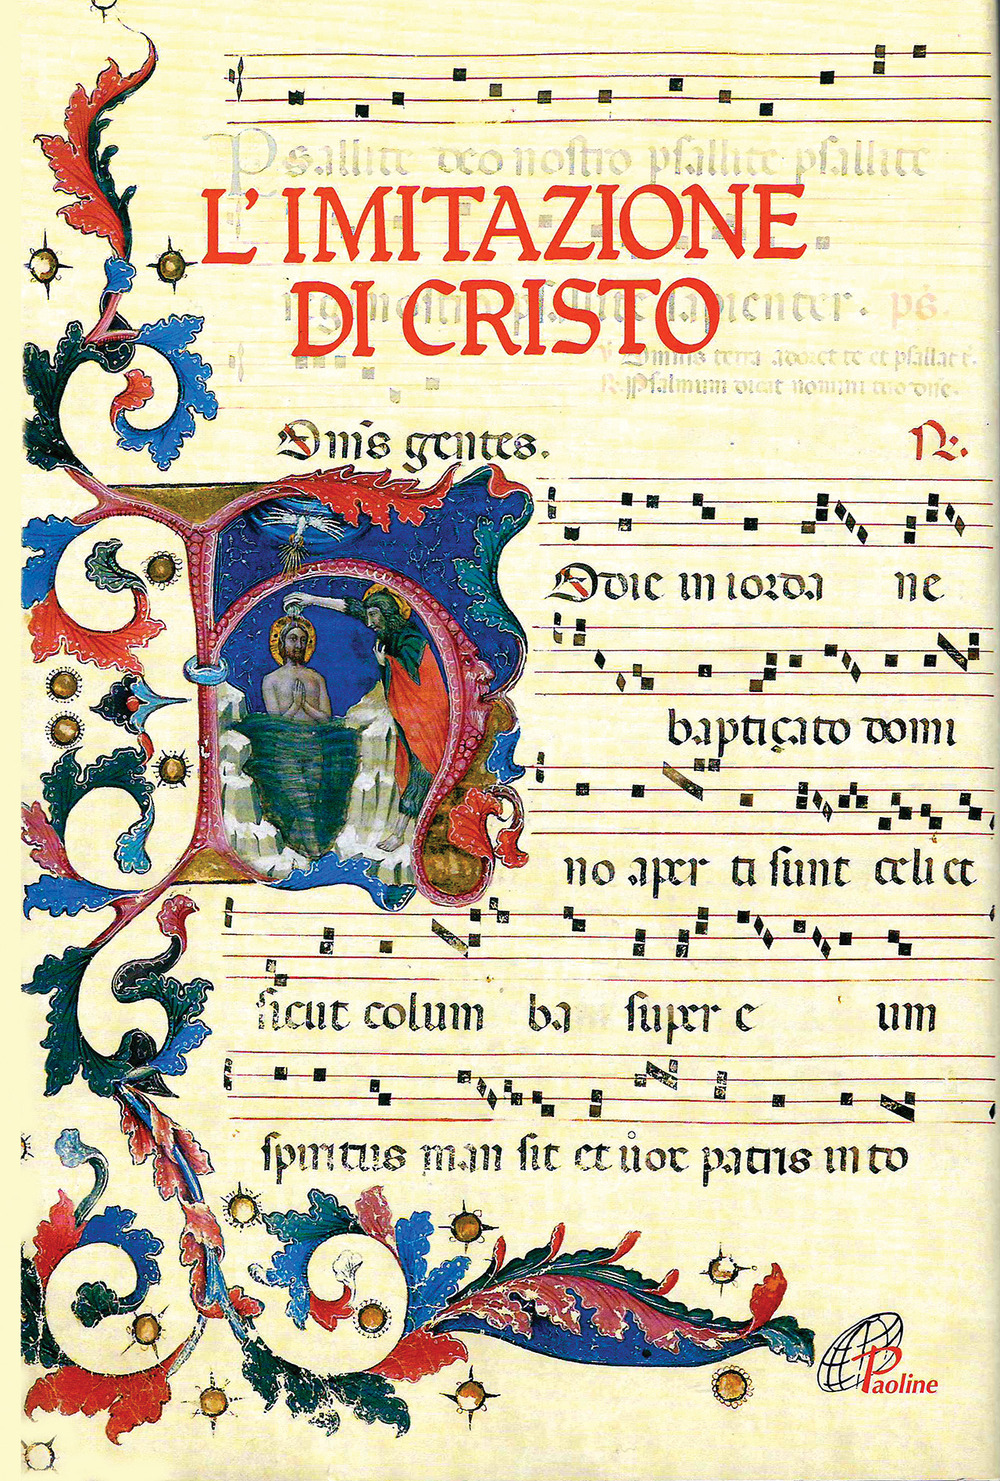 Psallite deo nostro psallite psallite
L'IMITAZIONE
DI CRISTO
regi nostro psallite sapienter. ps.
Omnis terra adoret te et psallat t.
R. Psalmum dicat nomini tuo dne.
Omīs gentes. R.
Odie in iorda ne
baptiçato domi
no aper ti sunt celi et
sicut colum ba super e um
spiritus man sit et uox patris in to
Paoline